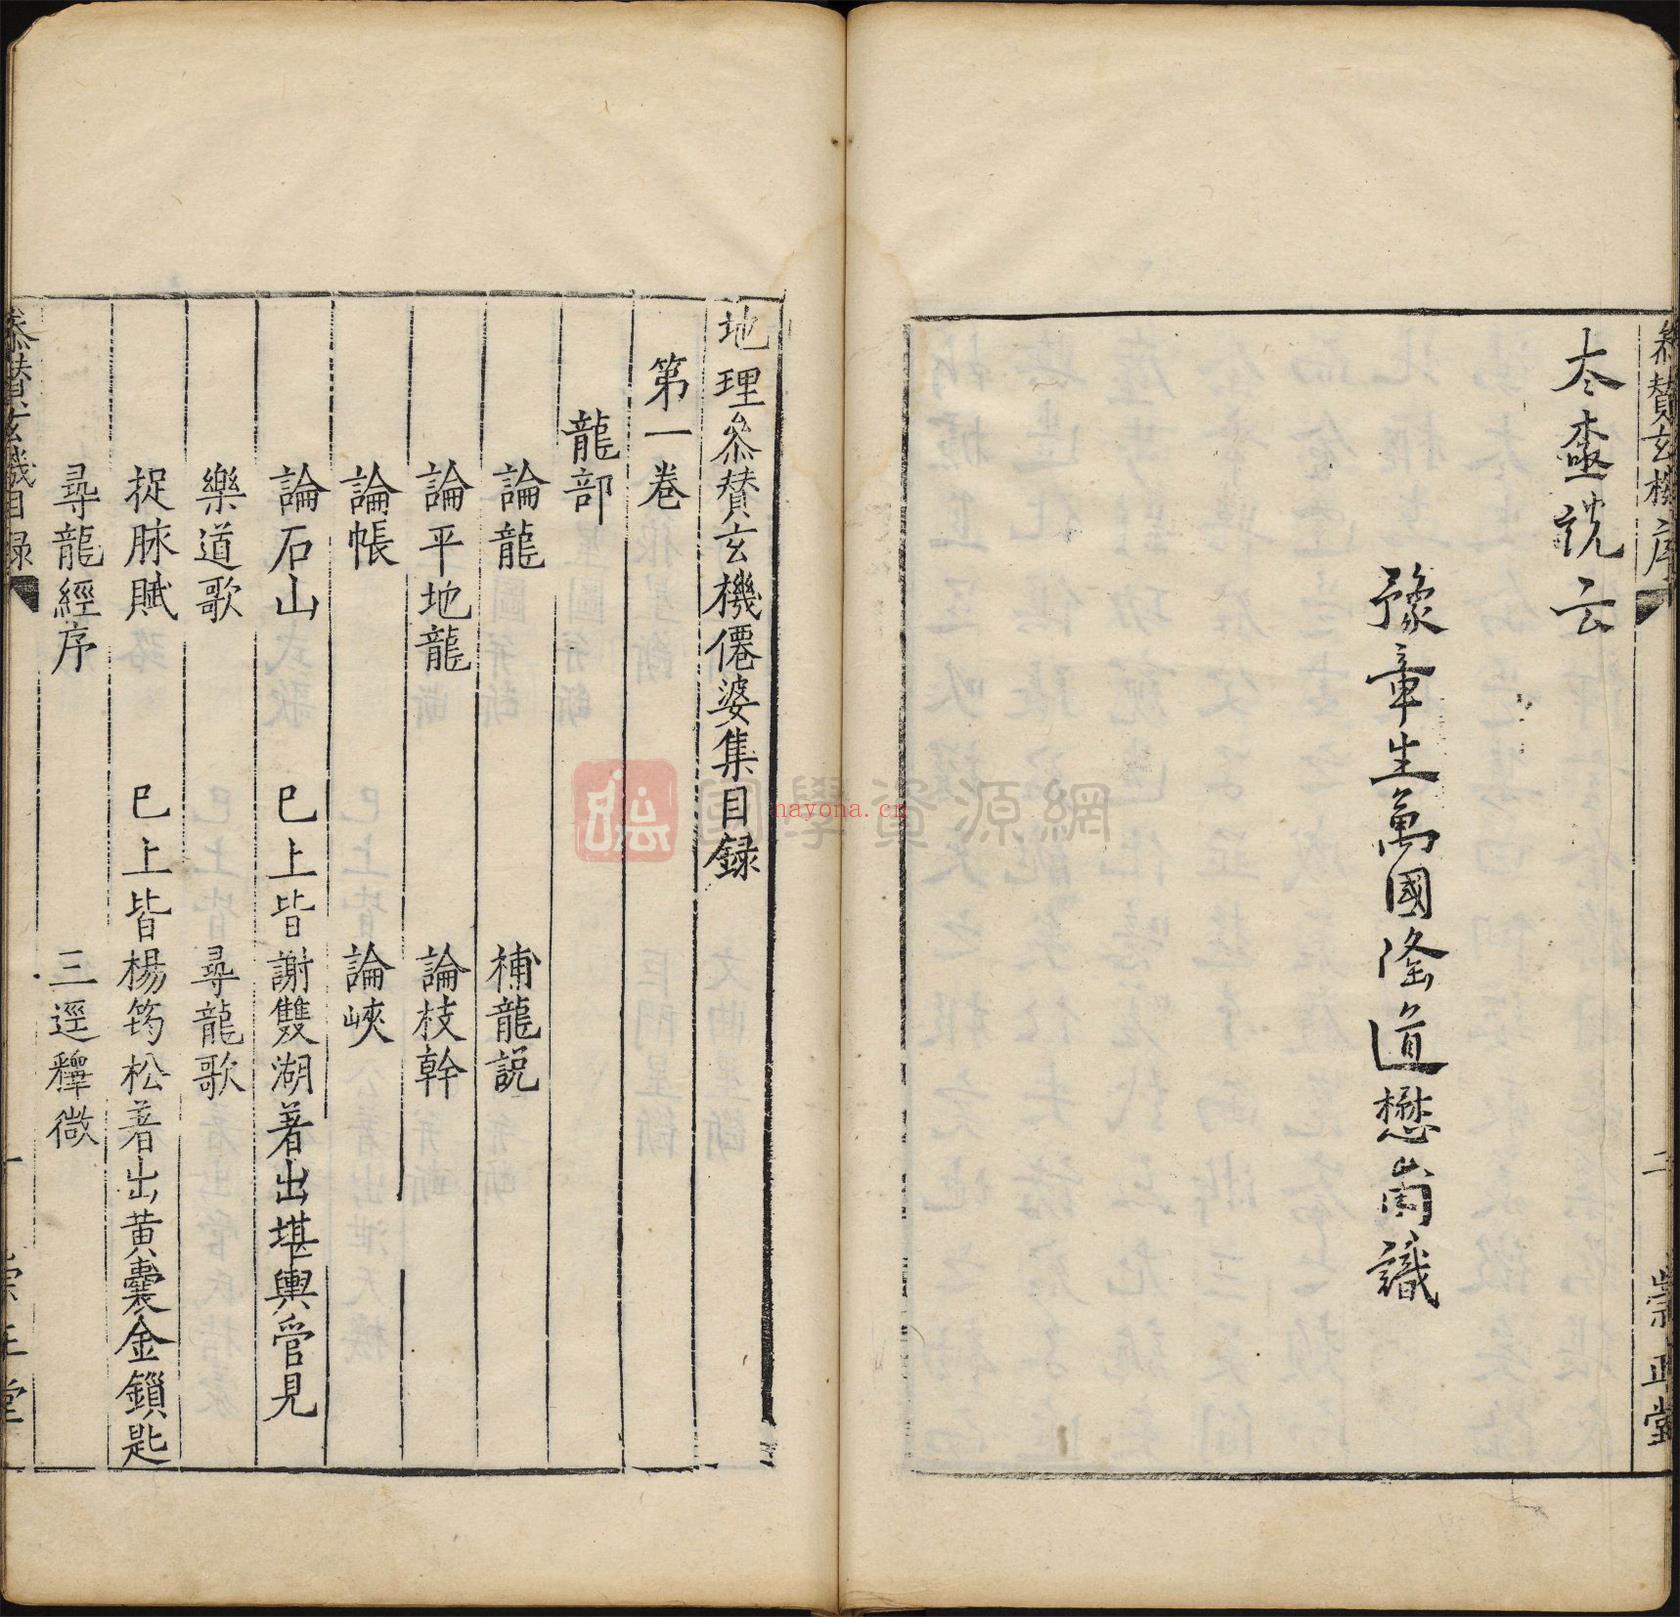 叅賛玄機序
二
崇正堂
夲盡說云
豫章生萬國隆道懋尚識
地理叅賛玄機僊婆集目録
第一卷
龍部
論龍　補龍説
論平地龍　論枝幹
論帳　論峽
論石山　巳上皆謝雙湖著出堪輿管見
樂道歌　尋龍歌
捉脉賦　巳上皆楊筠松著出黃囊金鎖匙
尋龍經序　三逕釋微
叅賛玄機目録
一
崇正堂
國學資源網
nayona.cn